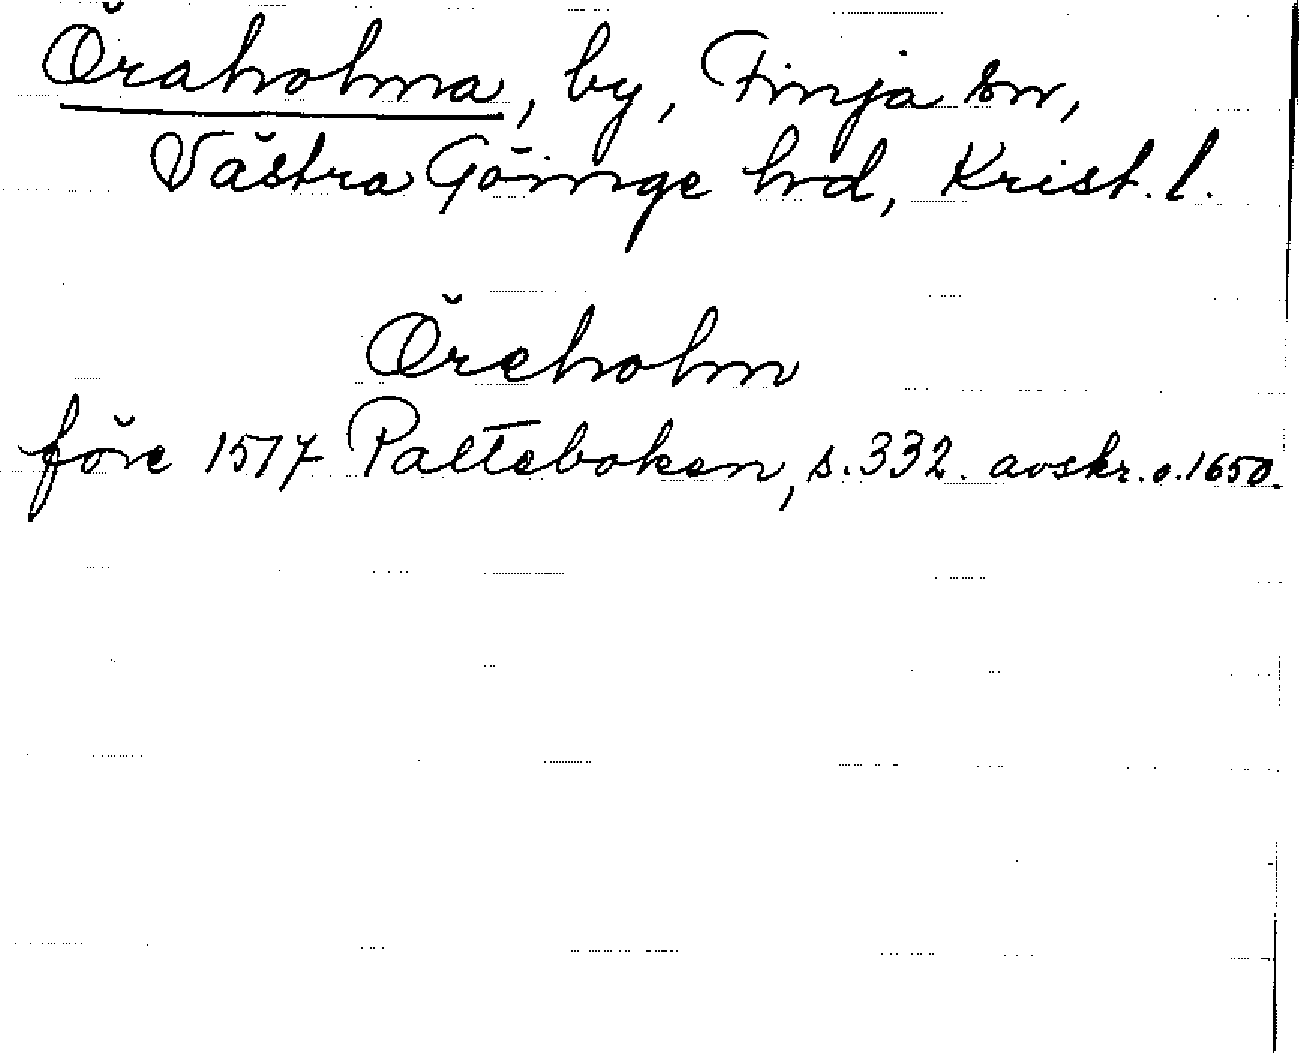 Öraholma, by, Finja sn,
Västra Göinge hrd, Krist. l.
Öreholm
före 1517 Palteboken, s. 332. avskr. o. 1650.